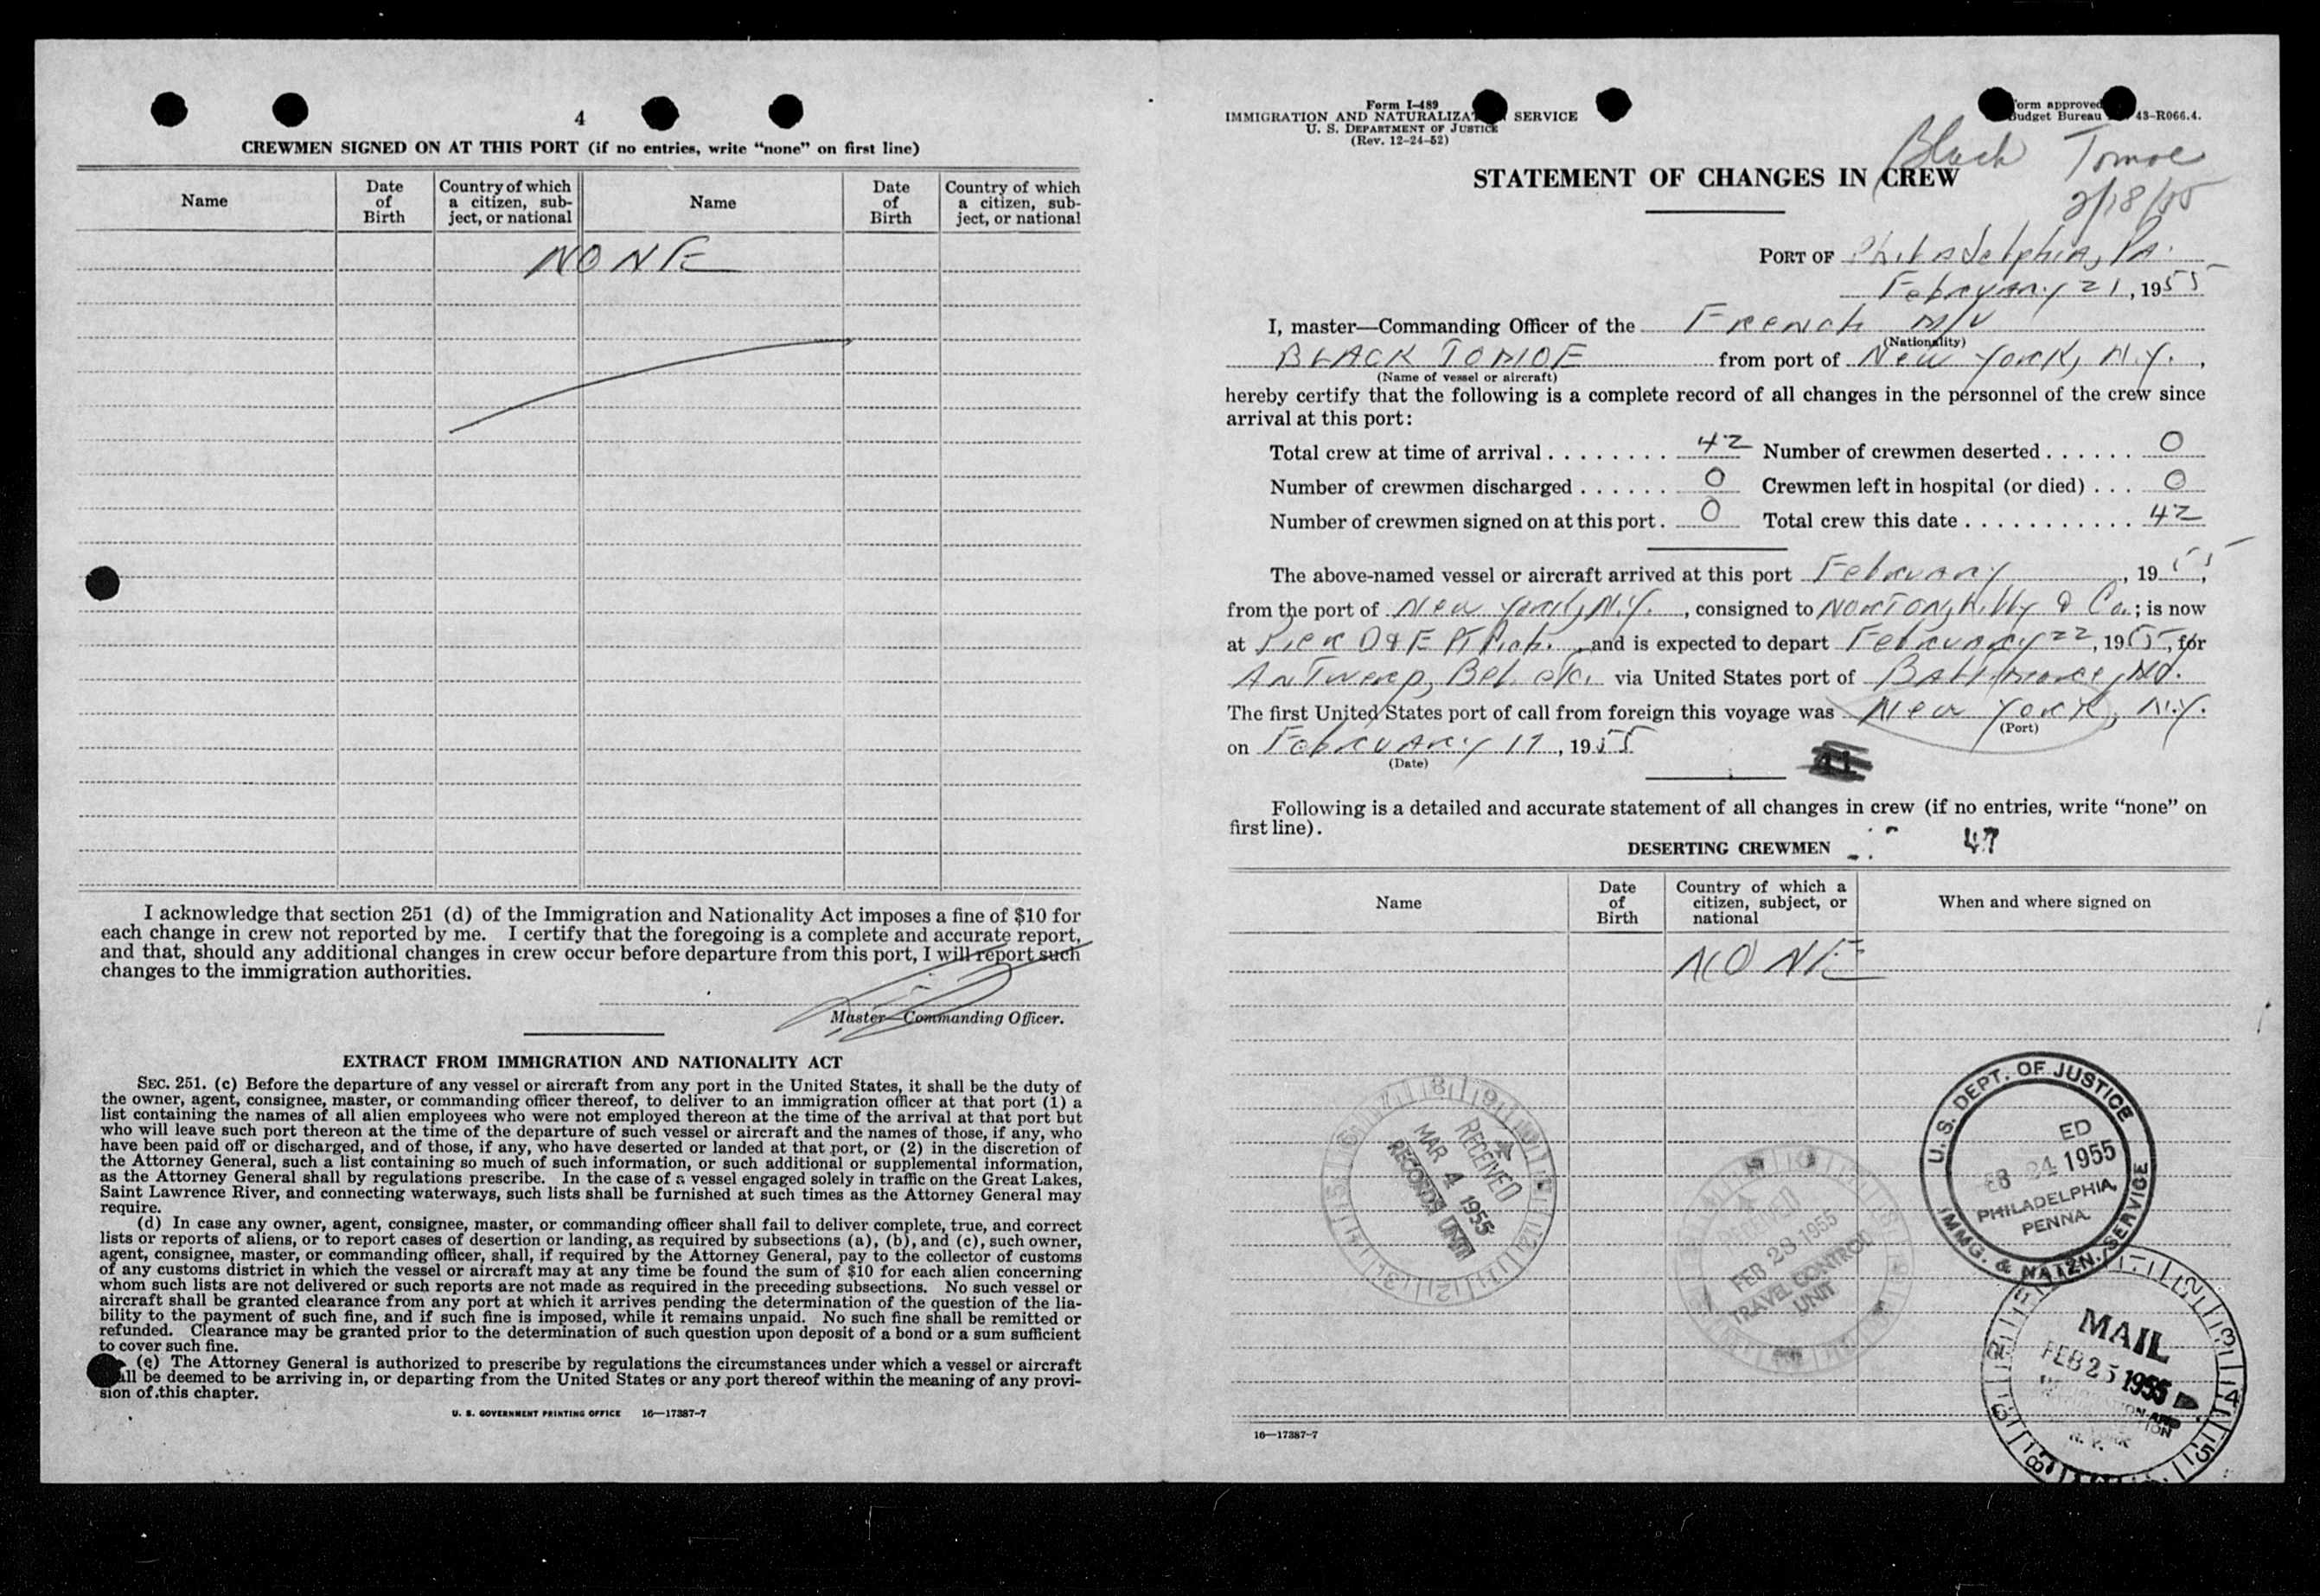 4
CREWMEN SIGNED ON AT THIS PORT (if no entries, write “none” on first line)
Name
Date of Birth
Country of which a citizen, subject, or national
Name
Date of Birth
Country of which a citizen, subject, or national
NONE
I acknowledge that section 251 (d) of the Immigration and Nationality Act imposes a fine of $10 for
each change in crew not reported by me. I certify that the foregoing is a complete and accurate report,
and that, should any additional changes in crew occur before departure from this port, I will report such
changes to the immigration authorities.
Master—Commanding Officer.
EXTRACT FROM IMMIGRATION AND NATIONALITY ACT
SEC. 251. (c) Before the departure of any vessel or aircraft from any port in the United States, it shall be the duty of
the owner, agent, consignee, master, or commanding officer thereof, to deliver to an immigration officer at that port (1) a
list containing the names of all alien employees who were not employed thereon at the time of the arrival at that port but
who will leave such port thereon at the time of the departure of such vessel or aircraft and the names of those, if any, who
have been paid off or discharged, and of those, if any, who have deserted or landed at that port, or (2) in the discretion of
the Attorney General, such a list containing so much of such information, or such additional or supplemental information,
as the Attorney General shall by regulations prescribe. In the case of a vessel engaged solely in traffic on the Great Lakes,
Saint Lawrence River, and connecting waterways, such lists shall be furnished at such times as the Attorney General may
require.
(d) In case any owner, agent, consignee, master, or commanding officer shall fail to deliver complete, true, and correct
lists or reports of aliens, or to report cases of desertion or landing, as required by subsections (a), (b), and (c), such owner,
agent, consignee, master, or commanding officer, shall, if required by the Attorney General, pay to the collector of customs
of any customs district in which the vessel or aircraft may at any time be found the sum of $10 for each alien concerning
whom such lists are not delivered or such reports are not made as required in the preceding subsections. No such vessel or
aircraft shall be granted clearance from any port at which it arrives pending the determination of the question of the lia-
bility to the payment of such fine, and if such fine is imposed, while it remains unpaid. No such fine shall be remitted or
refunded. Clearance may be granted prior to the determination of such question upon deposit of a bond or a sum sufficient
to cover such fine.
(e) The Attorney General is authorized to prescribe by regulations the circumstances under which a vessel or aircraft
all be deemed to be arriving in, or departing from the United States or any port thereof within the meaning of any provi-
sion of this chapter.
U. S. GOVERNMENT PRINTING OFFICE 16—17387-7
Form I-489
IMMIGRATION AND NATURALIZAT SERVICE
U. S. DEPARTMENT OF JUSTICE
(Rev. 12-24-52)
orm approved
Budget Bureau 43-R066.4.
Black Tomoe
2/18/55
STATEMENT OF CHANGES IN CREW
PORT OF Philadelphia, Pa.
February 21, 1955
I, master—Commanding Officer of the French M/V
(Nationality)
BLACK TOMOE from port of New York, N.Y.,
(Name of vessel or aircraft)
hereby certify that the following is a complete record of all changes in the personnel of the crew since
arrival at this port:
Total crew at time of arrival 42 Number of crewmen deserted 0
Number of crewmen discharged 0 Crewmen left in hospital (or died) 0
Number of crewmen signed on at this port. 0 Total crew this date 42
The above-named vessel or aircraft arrived at this port February, 1955,
from the port of New York, N.Y., consigned to Norton, Lilly & Co.; is now
at Pier D & E Pt Rich. and is expected to depart February 22, 1955, for
Antwerp, Bel. etc. via United States port of Baltimore, Md.
The first United States port of call from foreign this voyage was New York, N.Y.
(Port)
on February 17, 1955
(Date)
Following is a detailed and accurate statement of all changes in crew (if no entries, write “none” on
first line).
DESERTING CREWMEN
47
Name
Date of Birth
Country of which a citizen, subject, or national
When and where signed on
NONE
RECEIVED
MAR 4 1955
RECORDS UNIT
RECEIVED
FEB 28 1955
TRAVEL CONTROL
UNIT
U. S. DEPT. OF JUSTICE
ED
EB 24 1955
PHILADELPHIA,
PENNA.
IMMG. & NATZN. SERVICE
MAIL
FEB 25 1955
16—17387-7